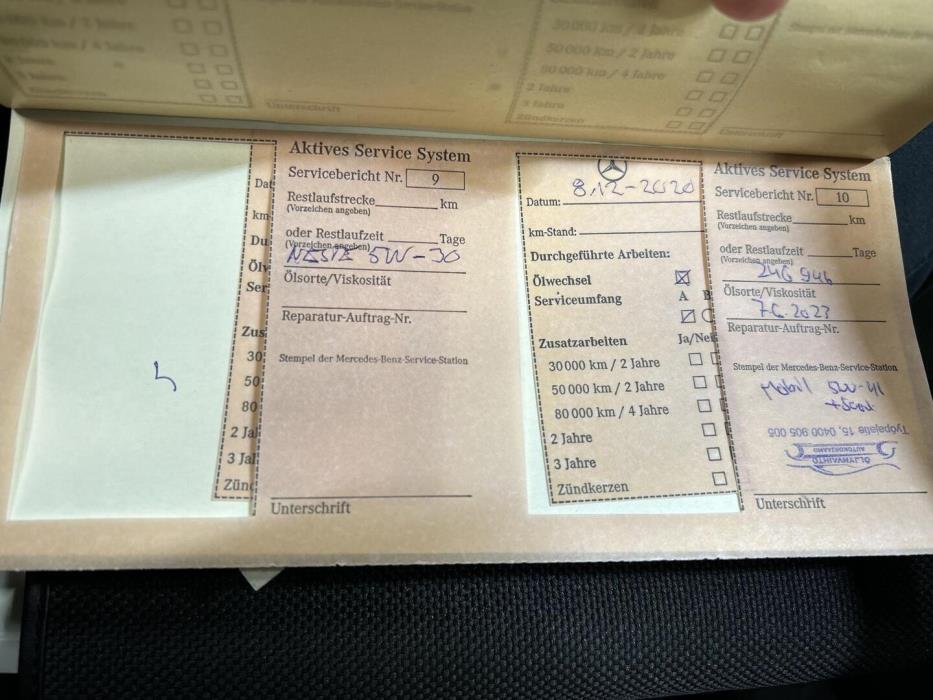 30 000 km / 2 Jahre
50 000 km / 2 Jahre
80 000 km / 4 Jahre
2 Jahre
3 Jahre
Zündkerzen
Unterschrift
Aktives Service System
Servicebericht Nr. 9
Restlaufstrecke km
(Vorzeichen angeben)
oder Restlaufzeit Tage
(Vorzeichen angeben)
NESTE 5W-30
Ölsorte/Viskosität
Reparatur-Auftrag-Nr.
Stempel der Mercedes-Benz-Service-Station
Unterschrift
Dat
km
Du
Ölw
Ser
Zus
30
50
80
2 Jal
3 Jal
Zünd
8.12-2020
Datum:
km-Stand:
Durchgeführte Arbeiten:
Ölwechsel
Serviceumfang A B
Zusatzarbeiten Ja/Nei
30 000 km / 2 Jahre
50 000 km / 2 Jahre
80 000 km / 4 Jahre
2 Jahre
3 Jahre
Zündkerzen
Aktives Service System
Servicebericht Nr. 10
Restlaufstrecke km
(Vorzeichen angeben)
oder Restlaufzeit Tage
(Vorzeichen angeben)
246 946
Ölsorte/Viskosität
7.6.2023
Reparatur-Auftrag-Nr.
Stempel der Mercedes-Benz-Service-Station
Mobil
Työpajatie 15, 0400 905 005
ÖLJYNVAIHTO
Unterschrift